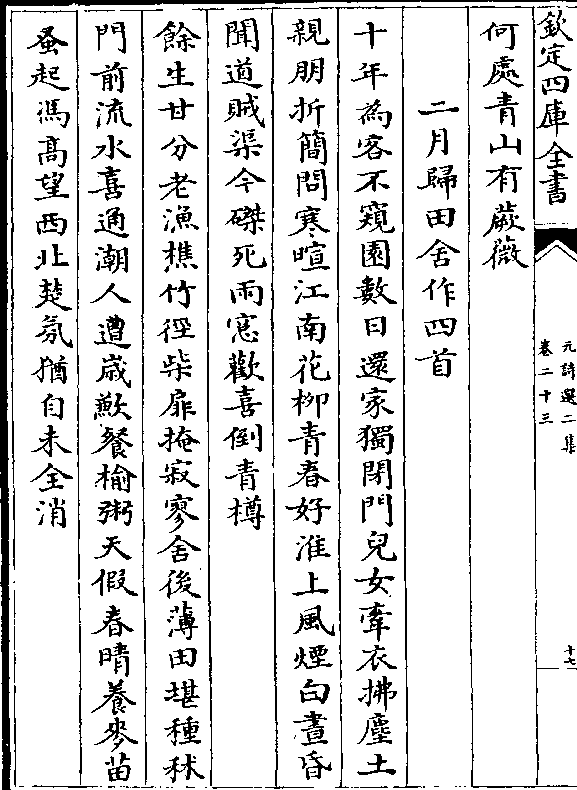 欽定四庫全書
元詩選二集
卷二十三
十七
何處青山有蕨薇
二月歸田舍作四首
十年為客不窺園數日還家獨閉門兒女牽衣拂塵土
親朋折簡問寒暄江南花柳青春好淮上風煙白晝昏
聞道賊渠今磔死雨窓歡喜倒青樽
餘生甘分老漁樵竹徑柴扉掩寂寥舍後薄田堪種秫
門前流水喜通潮人遭歲歉餐榆粥天假春晴養麥苗
蚤起馮高望西北楚氛猶自未全消